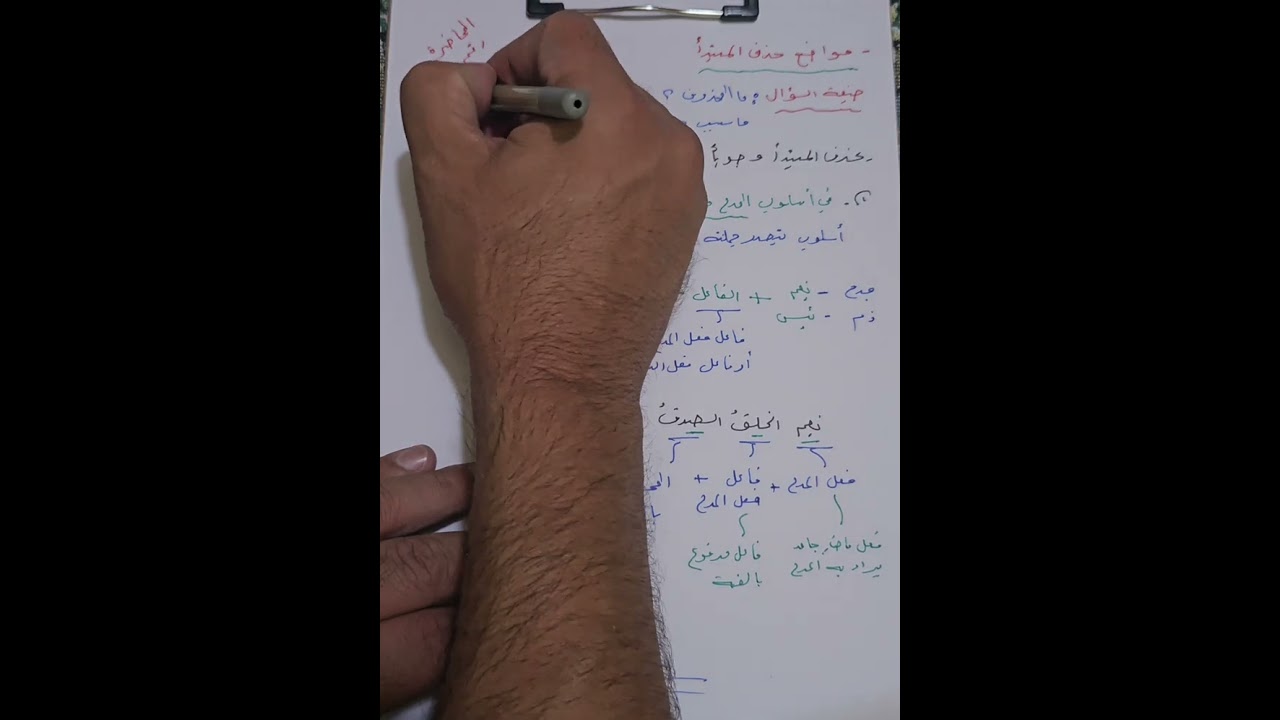 المحاضرة
رقم
- مواضع حذف المبتدأ
صيغة السؤال : ما المحذوف ؟
ما سبب
- يحذف المبتدأ وجوباً
في أسلوب المدح
أسلوب تتصدر جملته
مدح - نعم + الفاعل
ذم - بئس
فاعل فعل المد
أو فاعل فعل الذ
نعم الخلقُ الصدقُ
فعل المدح + فاعل + المخ
فعل المدح با
فعل ماضٍ جامد فاعل مرفوع
يراد به المدح بالضمة